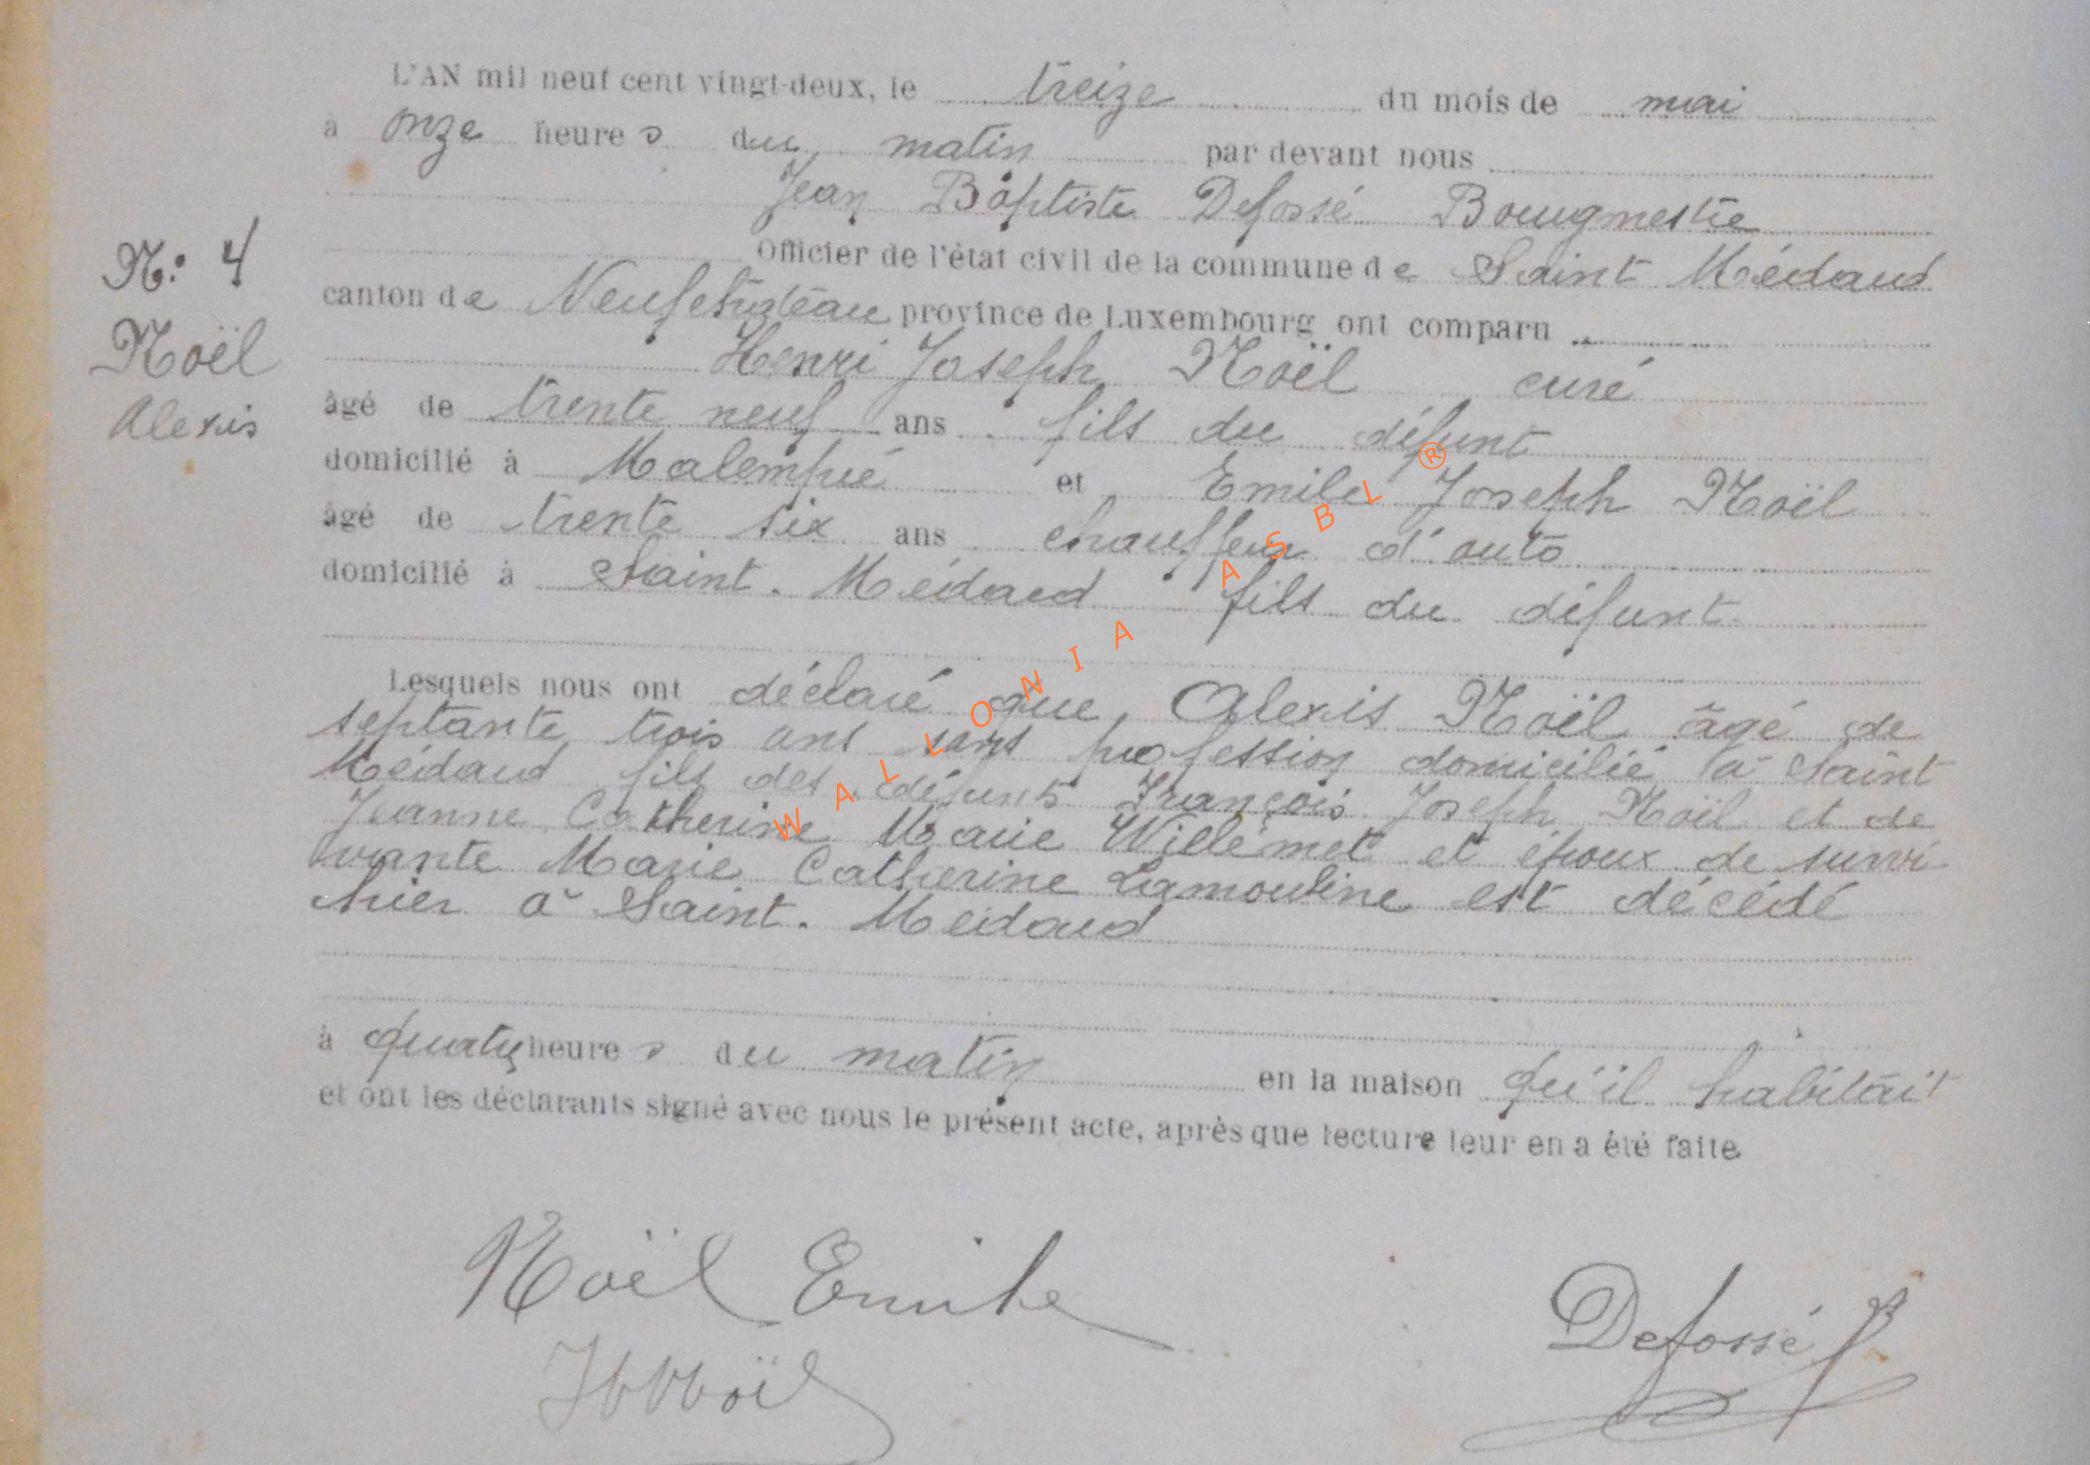 L'AN mil neuf cent vingt-deux, le treize du mois de mai
à onze heures du matin par devant nous
Jean Baptiste Defossé Bourgmestre
Officier de l'état civil de la commune de Saint Médard
canton de Neufchâteau province de Luxembourg ont comparu
N: 4
Noël
Alexis
Henri Joseph Noël curé
âgé de trente neuf ans fils du défunt
domicilié à Malempré et Emile Joseph Noël
âgé de trente six ans chauffeur d'auto
domicilié à Saint. Médard fils du défunt
Lesquels nous ont déclaré que Alexis Noël âgé de
septante trois ans sans profession domicilié à Saint
Médard fils des défunts François Joseph Noël et de
Jeanne Catherine Marie Willemet et époux de survi
vante Marie Catherine Lamouline est décédé
hier à Saint. Médard
à quatre heures du matin en la maison qu'il habitait
et ont les déclarants signé avec nous le présent acte, après que lecture leur en a été faite
Noël Emile
Defossé
HNoël
WALLONIA ASBL ®